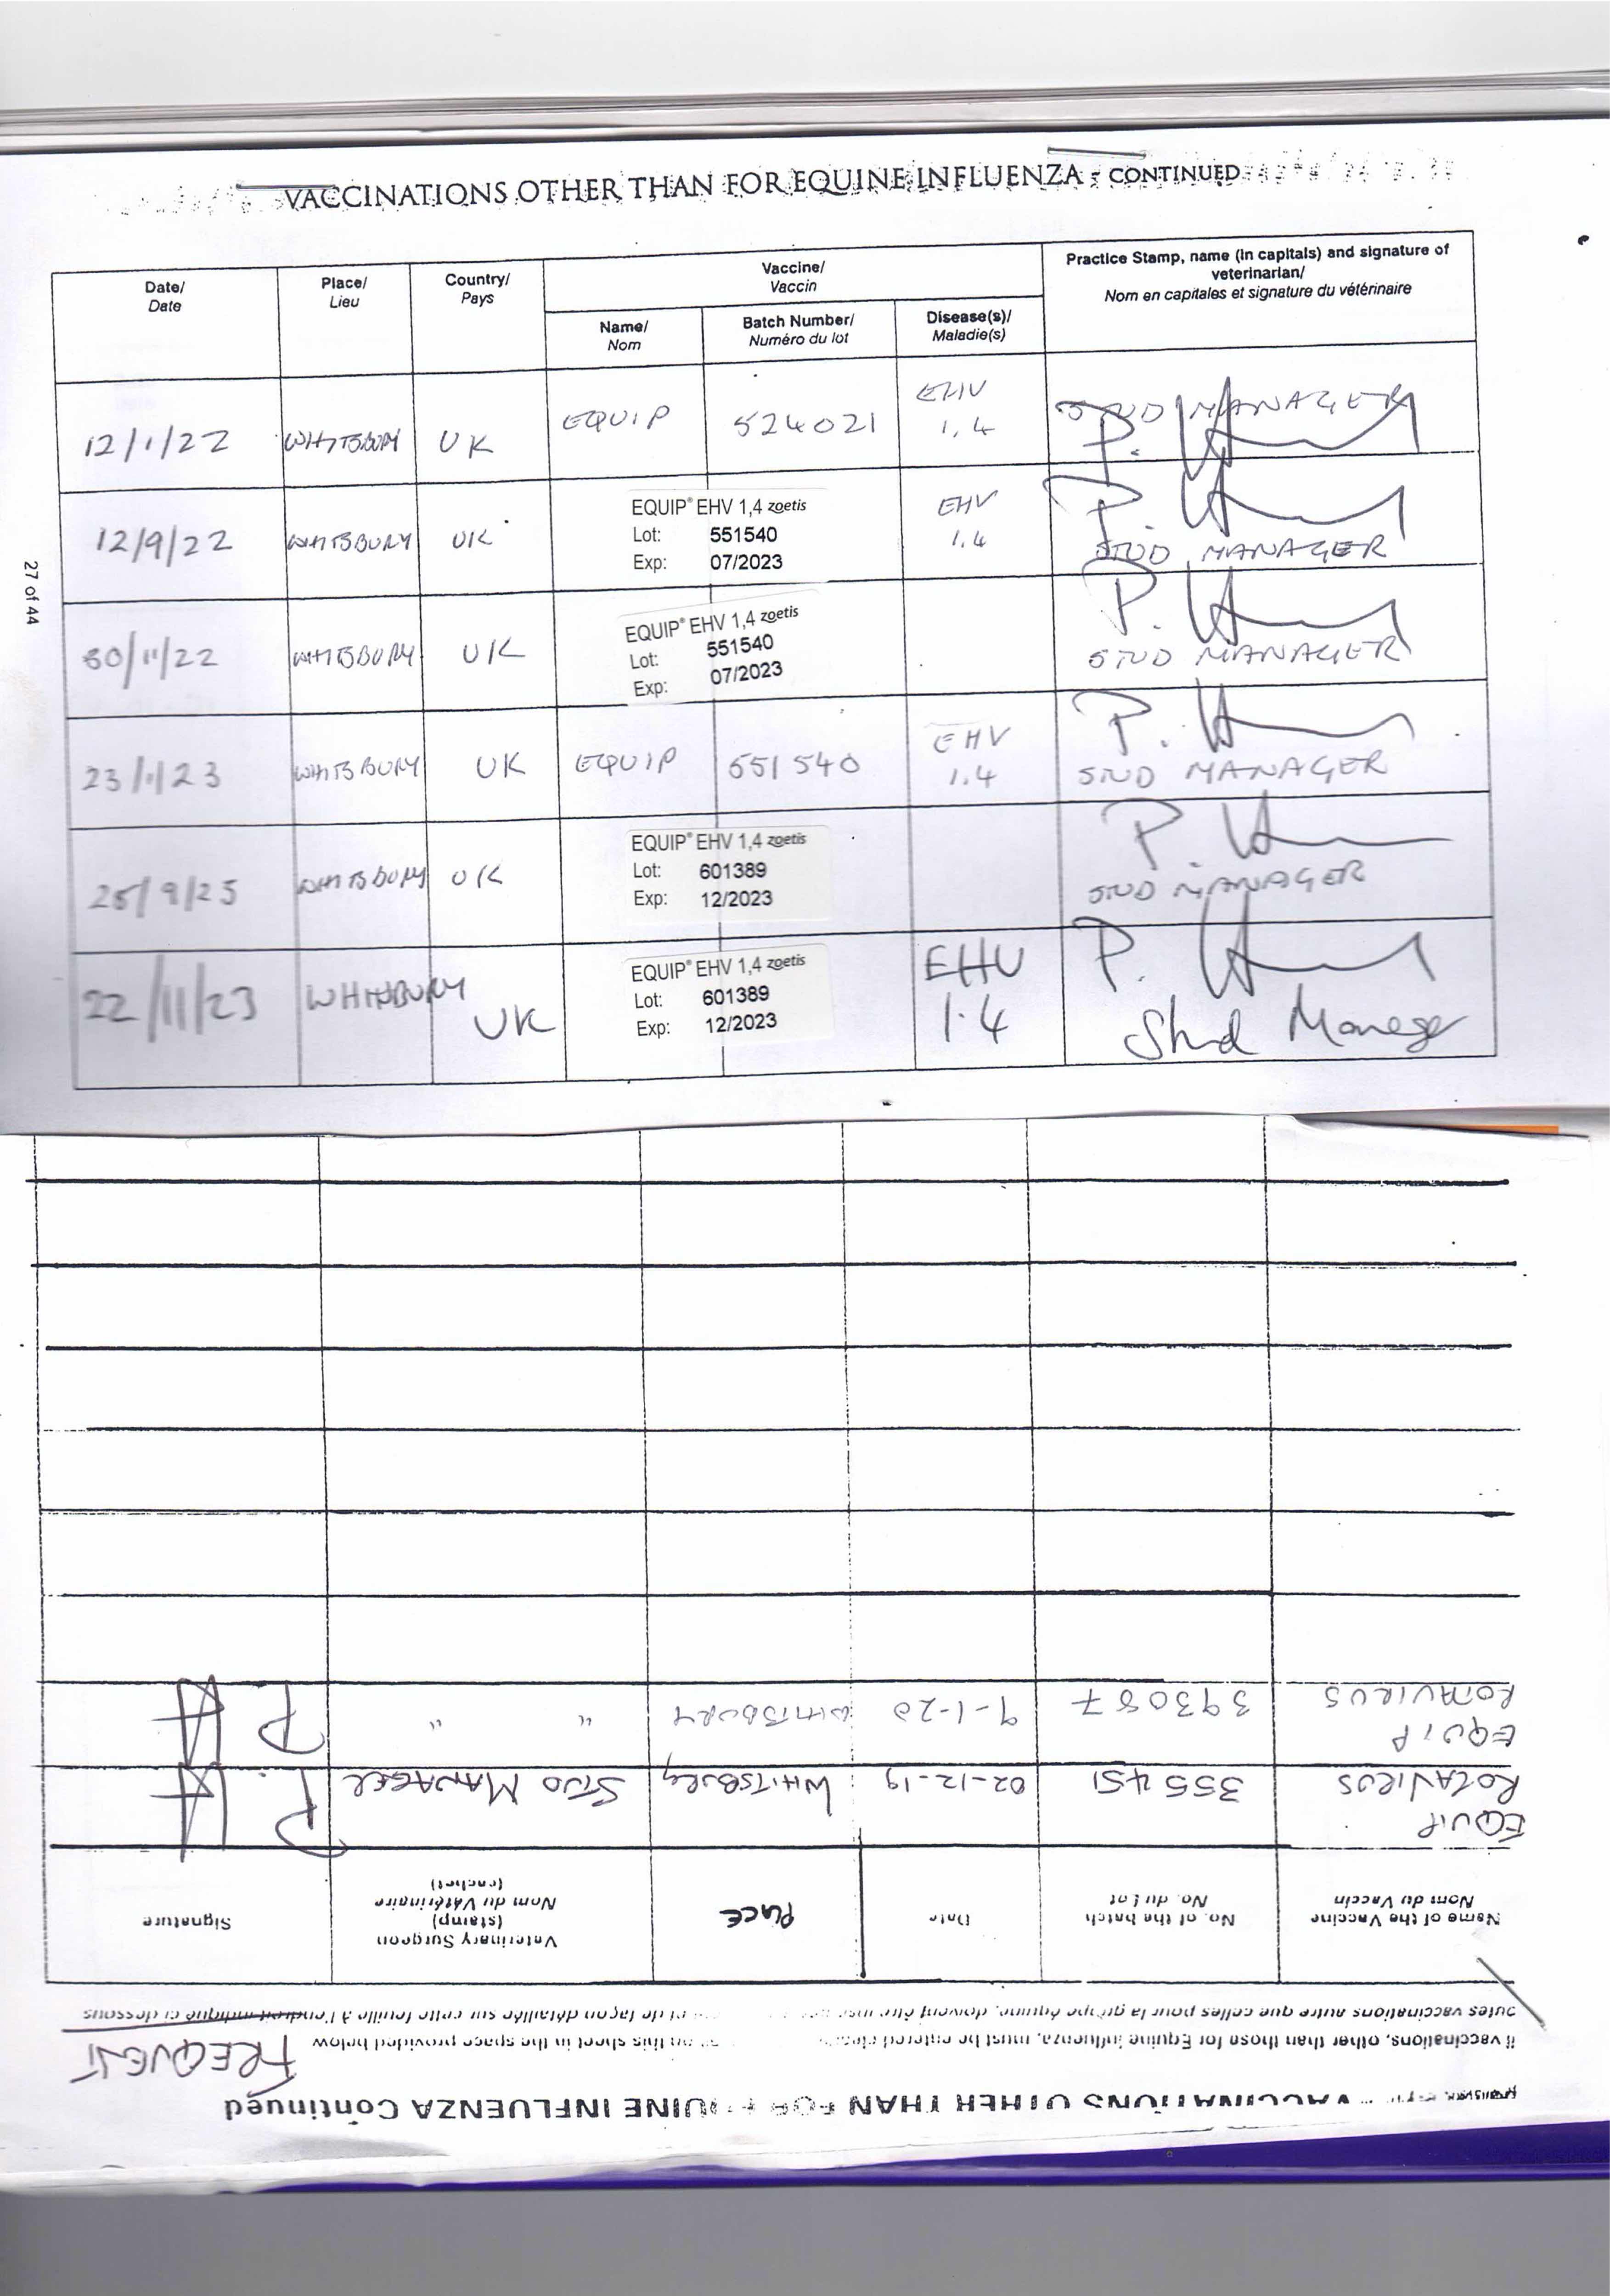 VACCINATIONS OTHER THAN FOR EQUINE INFLUENZA - CONTINUED
Date/ Date
Place/ Lieu
Country/ Pays
Vaccine/ Vaccin
Practice Stamp, name (in capitals) and signature of veterinarian/
Nom en capitales et signature du vétérinaire
Name/ Nom
Batch Number/ Numéro du lot
Disease(s)/ Maladie(s)
12/1/22 WHITSBURY UK EQUIP 524021 EHV 1,4 STUD MANAGER
12/9/22 WHITSBURY UK
EQUIP® EHV 1,4 zoetis
Lot: 551540
Exp: 07/2023
EHV 1.4
STUD MANAGER
30/11/22 WHITSBURY UK
EQUIP® EHV 1,4 zoetis
Lot: 551540
Exp: 07/2023
STUD MANAGER
23/1/23 WHITSBURY UK EQUIP 551540 EHV 1.4 STUD MANAGER
25/9/23 WHITSBURY UK
EQUIP® EHV 1,4 zoetis
Lot: 601389
Exp: 12/2023
STUD MANAGER
22/11/23 WHITSBURY UK
EQUIP® EHV 1,4 zoetis
Lot: 601389
Exp: 12/2023
EHV 1.4
Stud Manager
27 of 44
VACCINATIONS OTHER THAN FOR EQUINE INFLUENZA Continued
FREQUENT
vaccinations, other than those for Equine influenza, must be entered on this sheet in the space provided below
outes vaccinations autre que celles pour la grippe équine, doivent être et de façon détaillée sur cette feuille à l'endroit indiqué ci dessous
Name of the Vaccine
Nom du Vaccin
No. of the batch
No. du Lot
Date
PLACE
Veterinary Surgeon
(stamp)
Nom du Vétérinaire
(cachet)
Signature
EQUIP
ROTAVIRUS 355451 02-12-19 WHITSBURY STUD MANAGER
EQUIP
ROTAVIRUS 393087 9-1-20 WHITSBURY " "